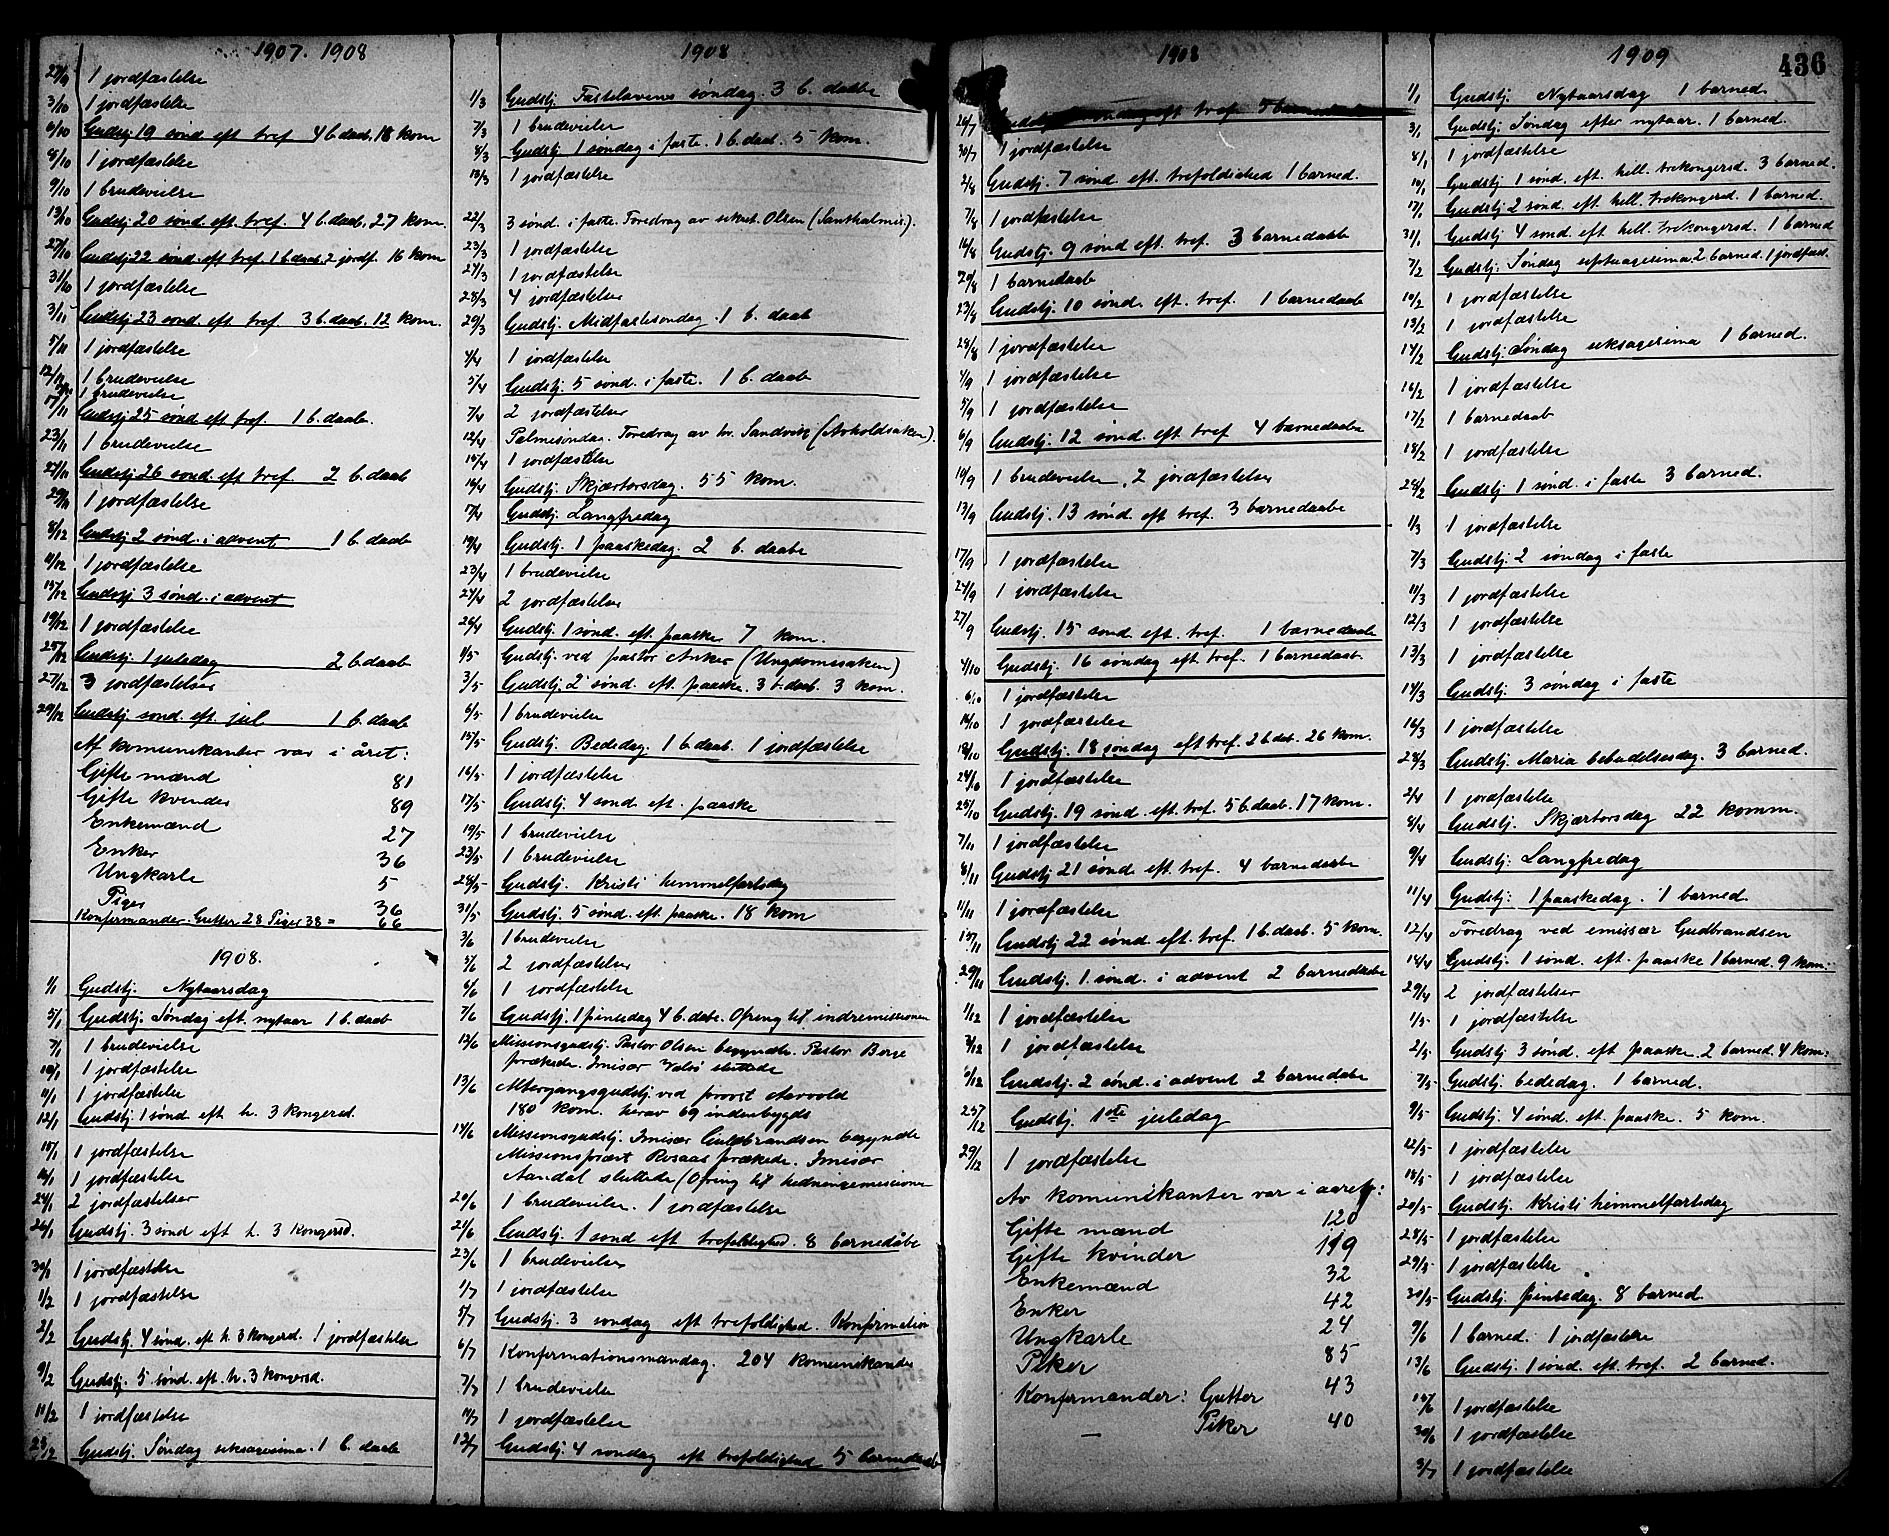 1907. 1908
27/9 1 jordfæstelse
3/10 1 jordfæstelse
6/10 Gudstj 19 sønd eft tref 4 b. daab. 18 kom
8/10 1 jordfæstelse
9/10 1 brudevielse
13/10 Gudstj 20 sønd eft tref. 4 b. daab. 27 kom.
27/10 Gudstj 22 sønd. eft tref. 1 b. daab. 2 jordf. 16 kom
31/10 1 jordfæstelse
3/11 Gudstj 23 sønd. eft. tref 3 b. daab. 12 kom.
5/11 1 jordfæstelse
12/11 1 brudevielse
1 brudevielse
17/11 Gudstj 25 sønd eft tref. 1 b. daab.
23/11 1 brudevielse
24/11 Gudstj 26 sønd. eft tref. 2 b. daab
29/11 1 jordfæstelse
8/12 Gudstj 2 sønd. i advent 1 b. daab
11/12 1 jordfæstelse
15/12 Gudstj 3 sønd. i advent
19/12 1 jordfæstelse
25/12 Gudstj. 1 juledag 2 b. daab
27/12 3 jordfæstelser
29/12 Gudstj sønd. eft. jul 1 b. daab
Af komunikanter var i året:
Gifte mænd 81
Gifte kvinder 89
Enkemænd 27
Enker 36
Ungkarle 5
Piger 36
Konfirmander Gutter 28 Piger 38 = 66
1908.
1/1 Gudstj. Nytaarsdag
5/1 Gudstj. Søndag eft. nytaar 1 b. daab
7/1 1 brudevielse
10/1 1 jordfæstelse
11/1 1 jordfæstelse
12/1 Gudstj. 1 sønd eft h. 3 kongersd.
15/1 1 jordfæstelse
16/1 1 jordfæstelse
24/1 2 jordfæstelser
26/1 Gudstj. 3 sønd eft h. 3 kongersd.
30/1 1 jordfæstelse
1/2 1 jordfæstelse
2/2 Gudstj. 4 sønd. eft h. 3 kongersd. 1 jordfæstelse
9/2 Gudstj. 5 sønd. eft. h. 3 kongersd.
11/2 1 jordfæstelse
23/2 Gudstj. Søndag seksagesima. 1 b. daab
1908
1/3 Gudstj. Fastelavens søndag. 3 b. daabe
7/3 1 brudevielse
8/3 Gudstj. 1 søndag i faste. 1 b. daab. 5 kom.
13/3 1 jordfæstelse
22/3 3 sønd. i faste. Foredrag av sekret. Olsen (Santhalmis.).
23/3 1 jordfæstelse
27/3 1 jordfæstelse
28/3 4 jordfæstelser
29/3 Gudstj. Midfastesøndag. 1 b. daab
4/4 1 jordfæstelse
5/4 Gudstj. 5 sønd. i faste. 1 b. daab
7/4 2 jordfæstelser
12/4 Palmesøndag. Foredrag av hr. Sandvik (Avholdsaken).
15/4 1 jordfæstelse
16/4 Gudstj. Skjærtorsdag. 55 kom.
17/4 Gudstj. Langfredag
19/4 Gudstj. 1 paaskedag. 2 b. daabe
23/4 1 brudevielse
24/4 2 jordfæstelser
26/4 Gudstj. 1 sønd. eft. paaske 7 kom.
1/5 Gudstj. ved pastor Anker (Ungdomssaken)
3/5 Gudstj. 2 sønd. eft. paaske. 3 b. daab. 3 kom.
6/5 1 brudevielse
15/5 Gudstj. Bededag. 1 b. daab. 1 jordfæstelse
16/5 1 jordfæstelse
17/5 Gudstj. 4 sønd. eft. paaske
19/5 1 brudevielse
23/5 1 brudevielse
28/5 Gudstj. Kristi himmelfartsdag
31/5 Gudstj. 5 sønd. eft. paaske. 18 kom
3/6 1 brudevielse
5/6 2 jordfæstelser
6/6 1 jordfæstelse
7/6 Gudstj. 1 pinsedag 4 b. daabe. Ofring til indremissionen
13/6 Missionsgudstj. Pastor Olsen begyndte. Pastor Borge
prækede. Imisær sluttede
13/6 Altergangsgudstj. ved provst Aarvold
180 kom. herav 69 indenbygds
14/6 Missionsgudstj. Imisær Guldbrandsen begyndte
Missionsprest Rosaas prækede. Imisær
Aandal sluttede (Ofring til hedningemissionen
20/6 1 brudevielse. 1 jordfæstelse
21/6 Gudstj. 1 sønd eft trefoldighed. 8 barnedåbe
23/6 1 brudevielse
1/7 1 jordfæstelse
5/7 Gudstj. 3 søndag eft trefoldighed. Konfirmation
6/7 Konfirmationsmandag. 204 komunikanter
7/7 1 brudevielse
11/7 1 jordfæstelse
12/7 Gudstj. 4 søndag eft trefoldighed 5 barnedaab
1908
26/7 Gudstj. søndag eft tref. 5 barnedaabe
30/7 1 jordfæstelse
2/8 Gudstj. 7 sønd. eft. trefoldighed 1 barned.
7/8 1 jordfæstelse
16/8 Gudstj. 9 sønd eft. tref. 3 barnedaabe
20/8 1 barnedaab
23/8 Gudstj. 10 sønd. eft. tref. 1 barnedaab
28/8 1 jordfæstelse
4/9 1 jordfæstelse
5/9 1 jordfæstelse
6/9 Gudstj. 12 sønd. eft. tref 4 barnedaabe
10/9 1 brudevielse, 2 jordfæstelser
13/9 Gudstj. 13 sønd. eft tref. 3 barnedaabe
17/9 1 jordfæstelse
24/9 1 jordfæstelse
27/9 Gudstj. 15 sønd. eft. tref. 1 barnedaab
4/10 Gudstj. 16 søndag eft tref. 1 barnedaab.
6/10 1 jordfæstelse
14/10 1 jordfæstelse
18/10 Gudstj. 18 søndag eft tref. 2 b. daab. 26 kom.
24/10 1 jordfæstelse
25/10 Gudstj. 19 sønd. eft tref. 5 b. daab. 17 kom.
7/11 1 jordfæstelse
8/11 Gudstj 21 sønd. eft tref. 4 barnedaabe
11/11 1 jordfæstelse
15/11 Gudstj 22 sønd. eft. tref. 1 b. daab. 5 kom.
29/11 Gudstj. 1. sønd. i advent 2 barnedaabe
1/12 1 jordfæstelse
3/12 1 jordfæstelse
6/12 Gudstj. 2 sønd. i advent 2 barnedaabe
25/12 Gudstj. 1ste juledag
29/12 1 jordfæstelse
Av komunikanter var i aaret:
Gifte mænd 120
Gifte kvinder 119
Enkemænd 32
Enker 42
Ungkarle 24
Piker 85
Konfirmander: Gutter 43
Piker 40
1909
436
1/1 Gudstj. Nytaarsdag 1 barned.
3/1 Gudstj. Søndag efter nytaar. 1 barned.
8/1 1 jordfæstelse
10/1 Gudstj 1 sønd. eft hell. trekongersd. 3 barned.
17/1 Gudstj 2 sønd. eft hell. trekongersd. 1 barned.
31/1 Gudstj 4 sønd. eft. hell. trekongersd. 1 barned
7/2 Gudstj. Søndag septuagesima 2 barned. 1 jordfæst.
10/2 1 jordfæstelse
13/2 1 jordfæstelse
14/2 Gudstj. Søndag seksagesima 1 barned.
16/2 1 jordfæstelse
17/2 1 barnedaab
18/2 1 jordfæstelse
28/2 Gudstj 1 sønd. i faste 3 barned.
1/3 1 jordfæstelse
7/3 Gudstj. 2 søndag i faste
11/3 1 jordfæstelse
12/3 1 jordfæstelse
13/3 1 jordfæstelse
14/3 Gudstj. 3 søndag i faste
16/3 1 jordfæstelse
28/3 Gudstj. Maria bebudelsesdag. 3 barned.
2/4 1 jordfæstelse
8/4 Gudstj. Skjærtorsdag 22 komm.
9/4 Gudstj. Langfredag
11/4 Gudstj: 1 paaskedag. 1 barned.
12/4 Foredrag ved emissær Gudbrandsen
18/4 Gudstj. 1 sønd. eft. paaske 1 barned. 9 kom.
29/4 2 jordfæstelser
1/5 1 jordfæstelse
2/5 Gudstj 3 sønd. eft paaske. 2 barned. 4 kom.
7/5 Gudstj. bededag. 1 barned.
9/5 Gudstj. 4 sønd. eft. paaske. 5 kom.
12/5 1 jordfæstelse
15/5 1 jordfæstelse
20/5 Gudstj. Kristi himmelfartsdag
28/5 1 jordfæstelse
29/5 1 jordfæstelse
30/5 Gudstj. pinsedag. 8 barned
9/6 1 barned. 1 jordfæstelse
13/6 Gudstj. 1 sønd. eft. tref. 2 barned.
15/6 1 jordfæstelse
30/6 1 jordfæstelse
3/7 1 jordfæstelse